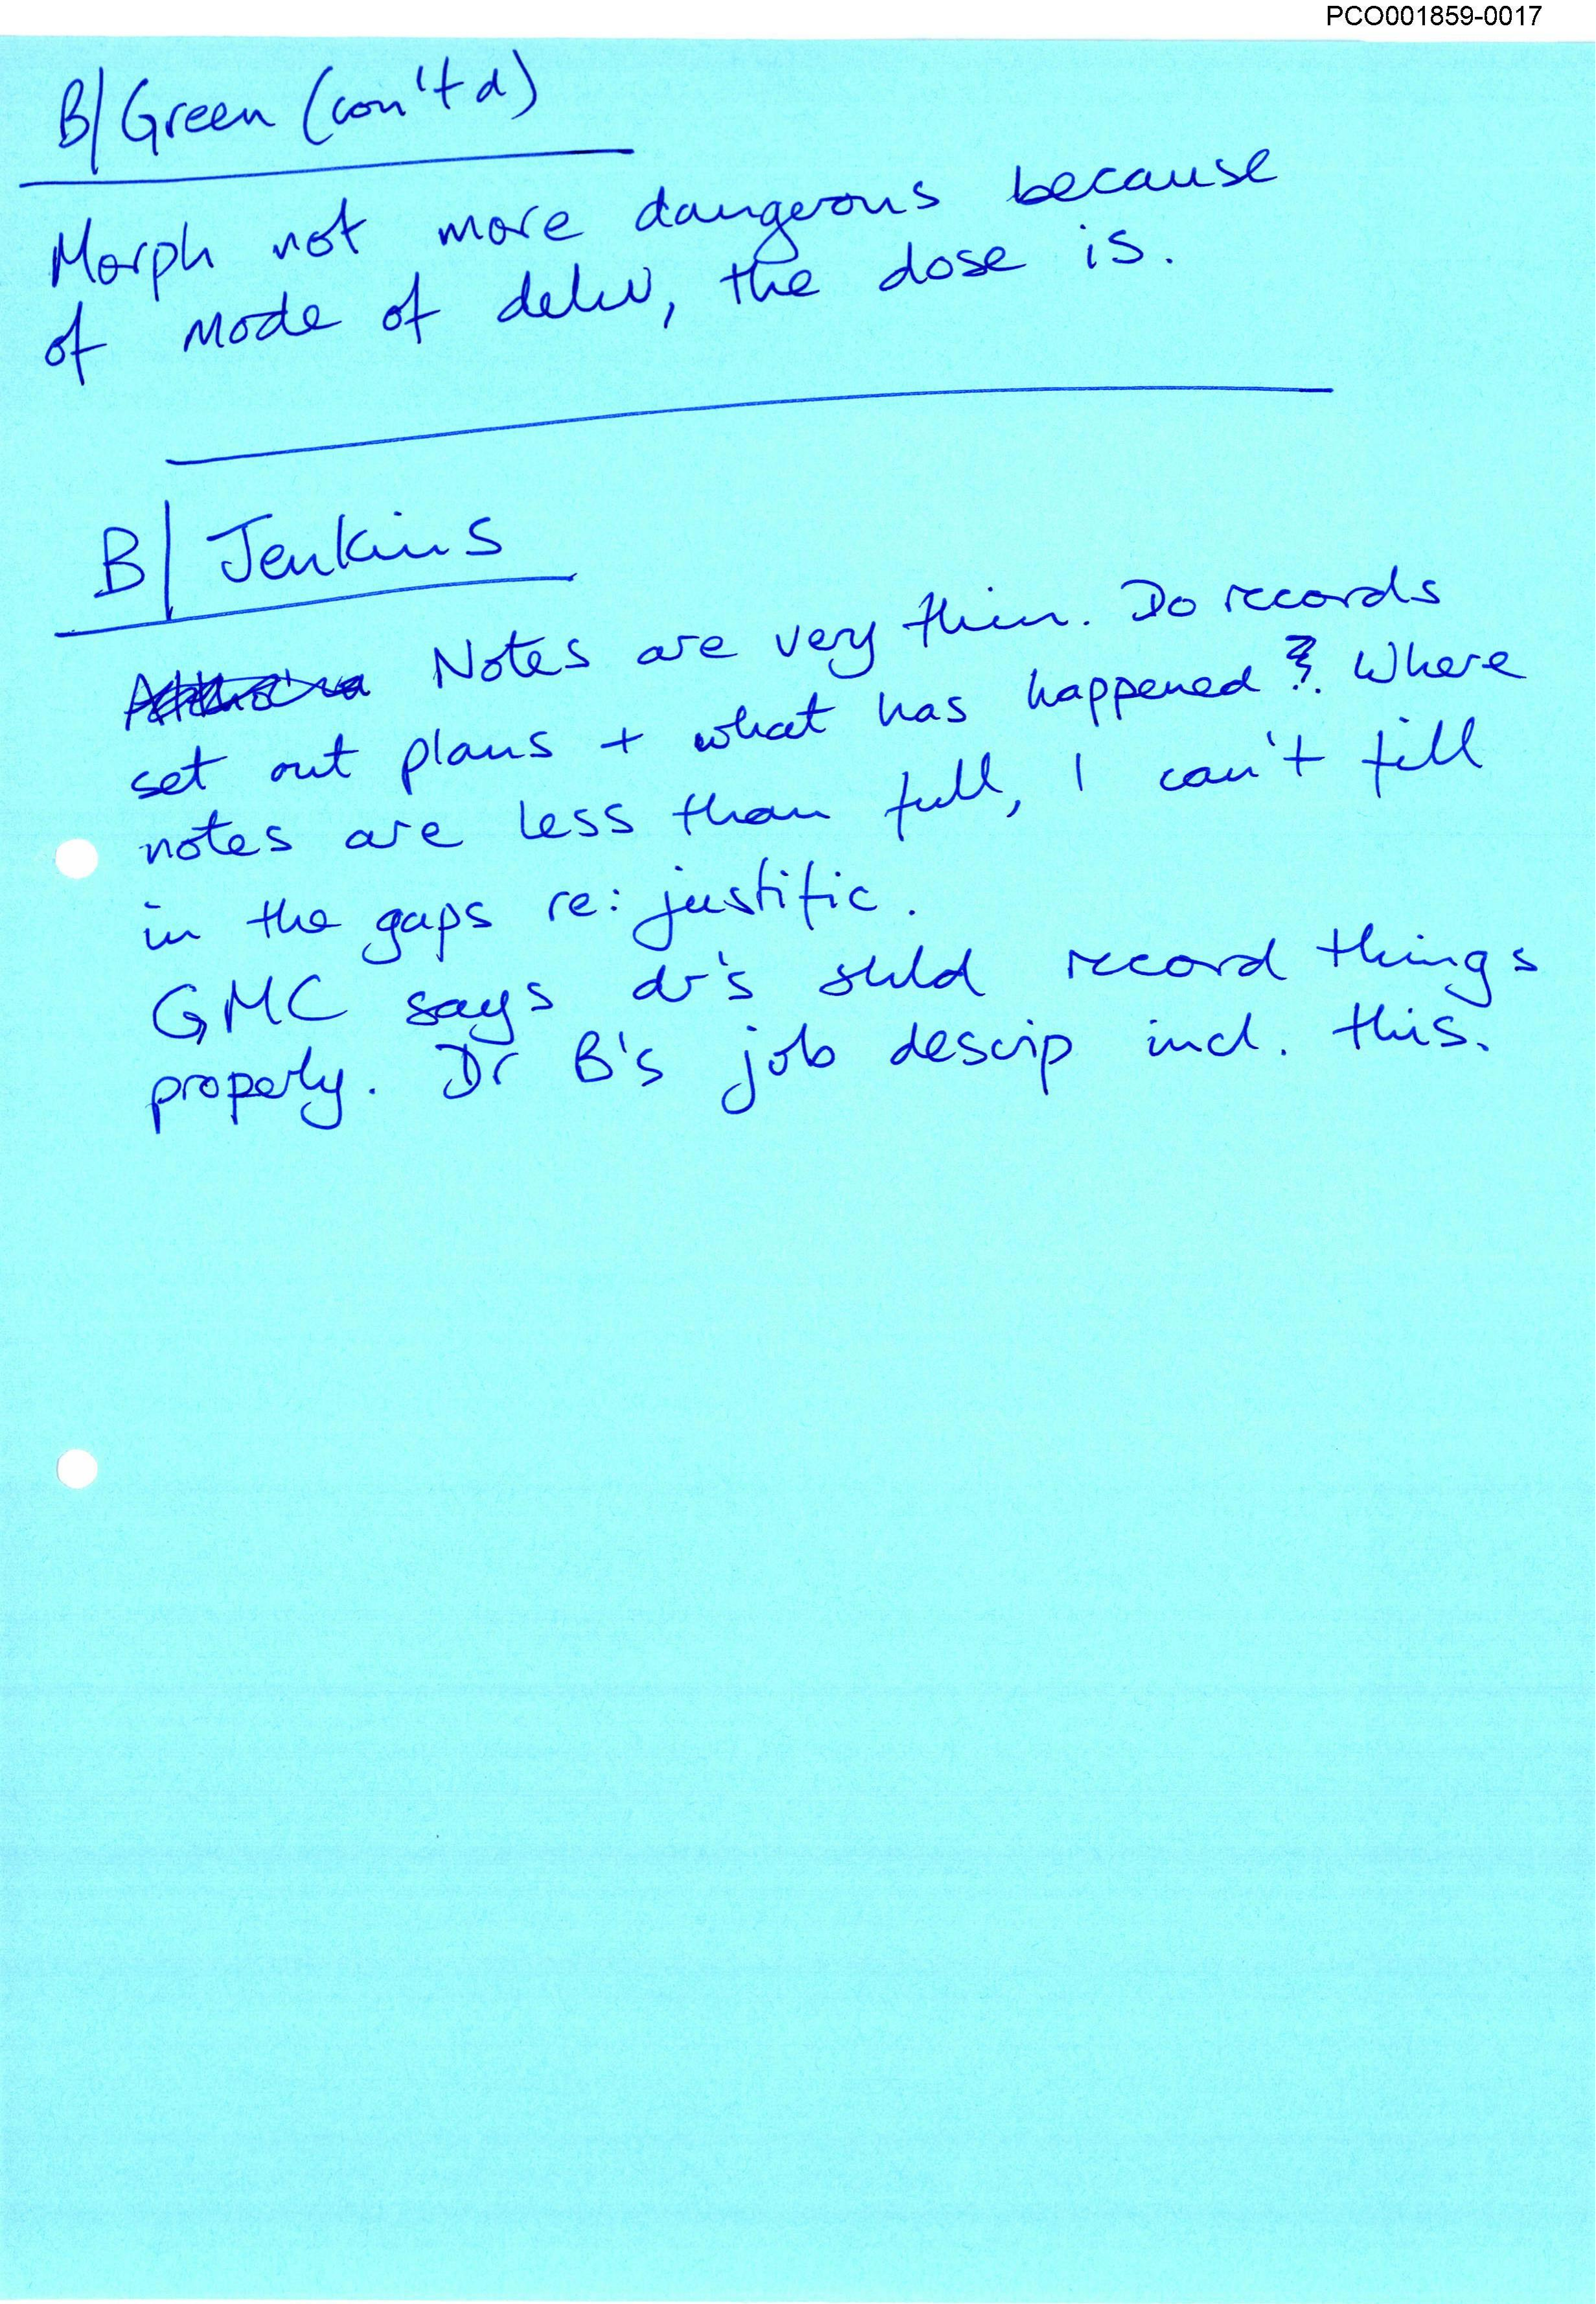 PCO001859-0017
B/ Green (con'td)
Morph not more dangerous because
of mode of deliv, the dose is.
B/ Jenkins
Notes are very thin. Do records
set out plans + what has happened? Where
notes are less than full, I can't fill
in the gaps re: justific.
GMC says dr's shld record things
properly. Dr B's job descrip incl. this.